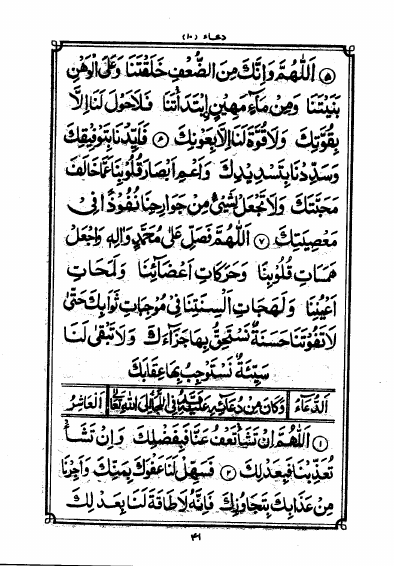 دعاء (١٠)
۵ اَللّٰهُمَّ وَاِنَّكَ مِنَ الضُّعْفِ خَلَقْتَنَا وَعَلَى الْوَهْنِ
بَنَيْتَنَا وَمِنْ مَآءٍ مَهِيْنٍ اِبْتَدَاْتَنَا فَلَاحَوْلَ لَنَا اِلَّا
بِقُوَّتِكَ وَلَا قُوَّةَ لَنَا اِلَّا بِعَوْنِكَ ۶ فَاَيِّدْنَا بِتَوْفِيْقِكَ
وَسَدِّدْنَا بِتَسْدِيْدِكَ وَاَعْمِ اَبْصَارَ قُلُوْبِنَا عَمَّا خَالَفَ
مَحَبَّتَكَ وَلَا تَجْعَلْ لِشَيْءٍ مِنْ جَوَارِحِنَا نُفُوْذًا فِىْ
مَعْصِيَتِكَ ۷ اَللّٰهُمَّ فَصَلِّ عَلٰى مُحَمَّدٍ وَاٰلِهٖ وَاجْعَلْ
هَمَسَاتِ قُلُوْبِنَا وَحَرَكَاتِ اَعْضَآئِنَا وَلَمَحَاتِ
اَعْيُنِنَا وَلَهَجَاتِ اَلْسِنَتِنَا فِىْ مُوْجِبَاتِ ثَوَابِكَ حَتّٰى
لَا تَفُوْتَنَا حَسَنَةٌ نَسْتَحِقُّ بِهَا جَزَآءَكَ وَلَا تَبْقٰى لَنَا
سَيِّئَةٌ نَسْتَوْجِبُ بِهَا عِقَابَكَ
اَلدُّعَاءُ وَكَانَ مِنْ دُعَائِهٖ عَلَيْهِ فِى اللَّجَأِ اِلَى اللّٰهِ تَعَالٰى اَلْعَاشِرُ
۱ اَللّٰهُمَّ اِنْ تَشَأْ تَعْفُ عَنَّا فَبِفَضْلِكَ وَاِنْ تَشَأْ
تُعَذِّبْنَا فَبِعَدْلِكَ ۲ فَسَهِّلْ لَنَا عَفْوَكَ بِمَنِّكَ وَاَجِرْنَا
مِنْ عَذَابِكَ بِتَجَاوُزِكَ فَاِنَّهٗ لَا طَاقَةَ لَنَا بِعَدْلِكَ
۴۹